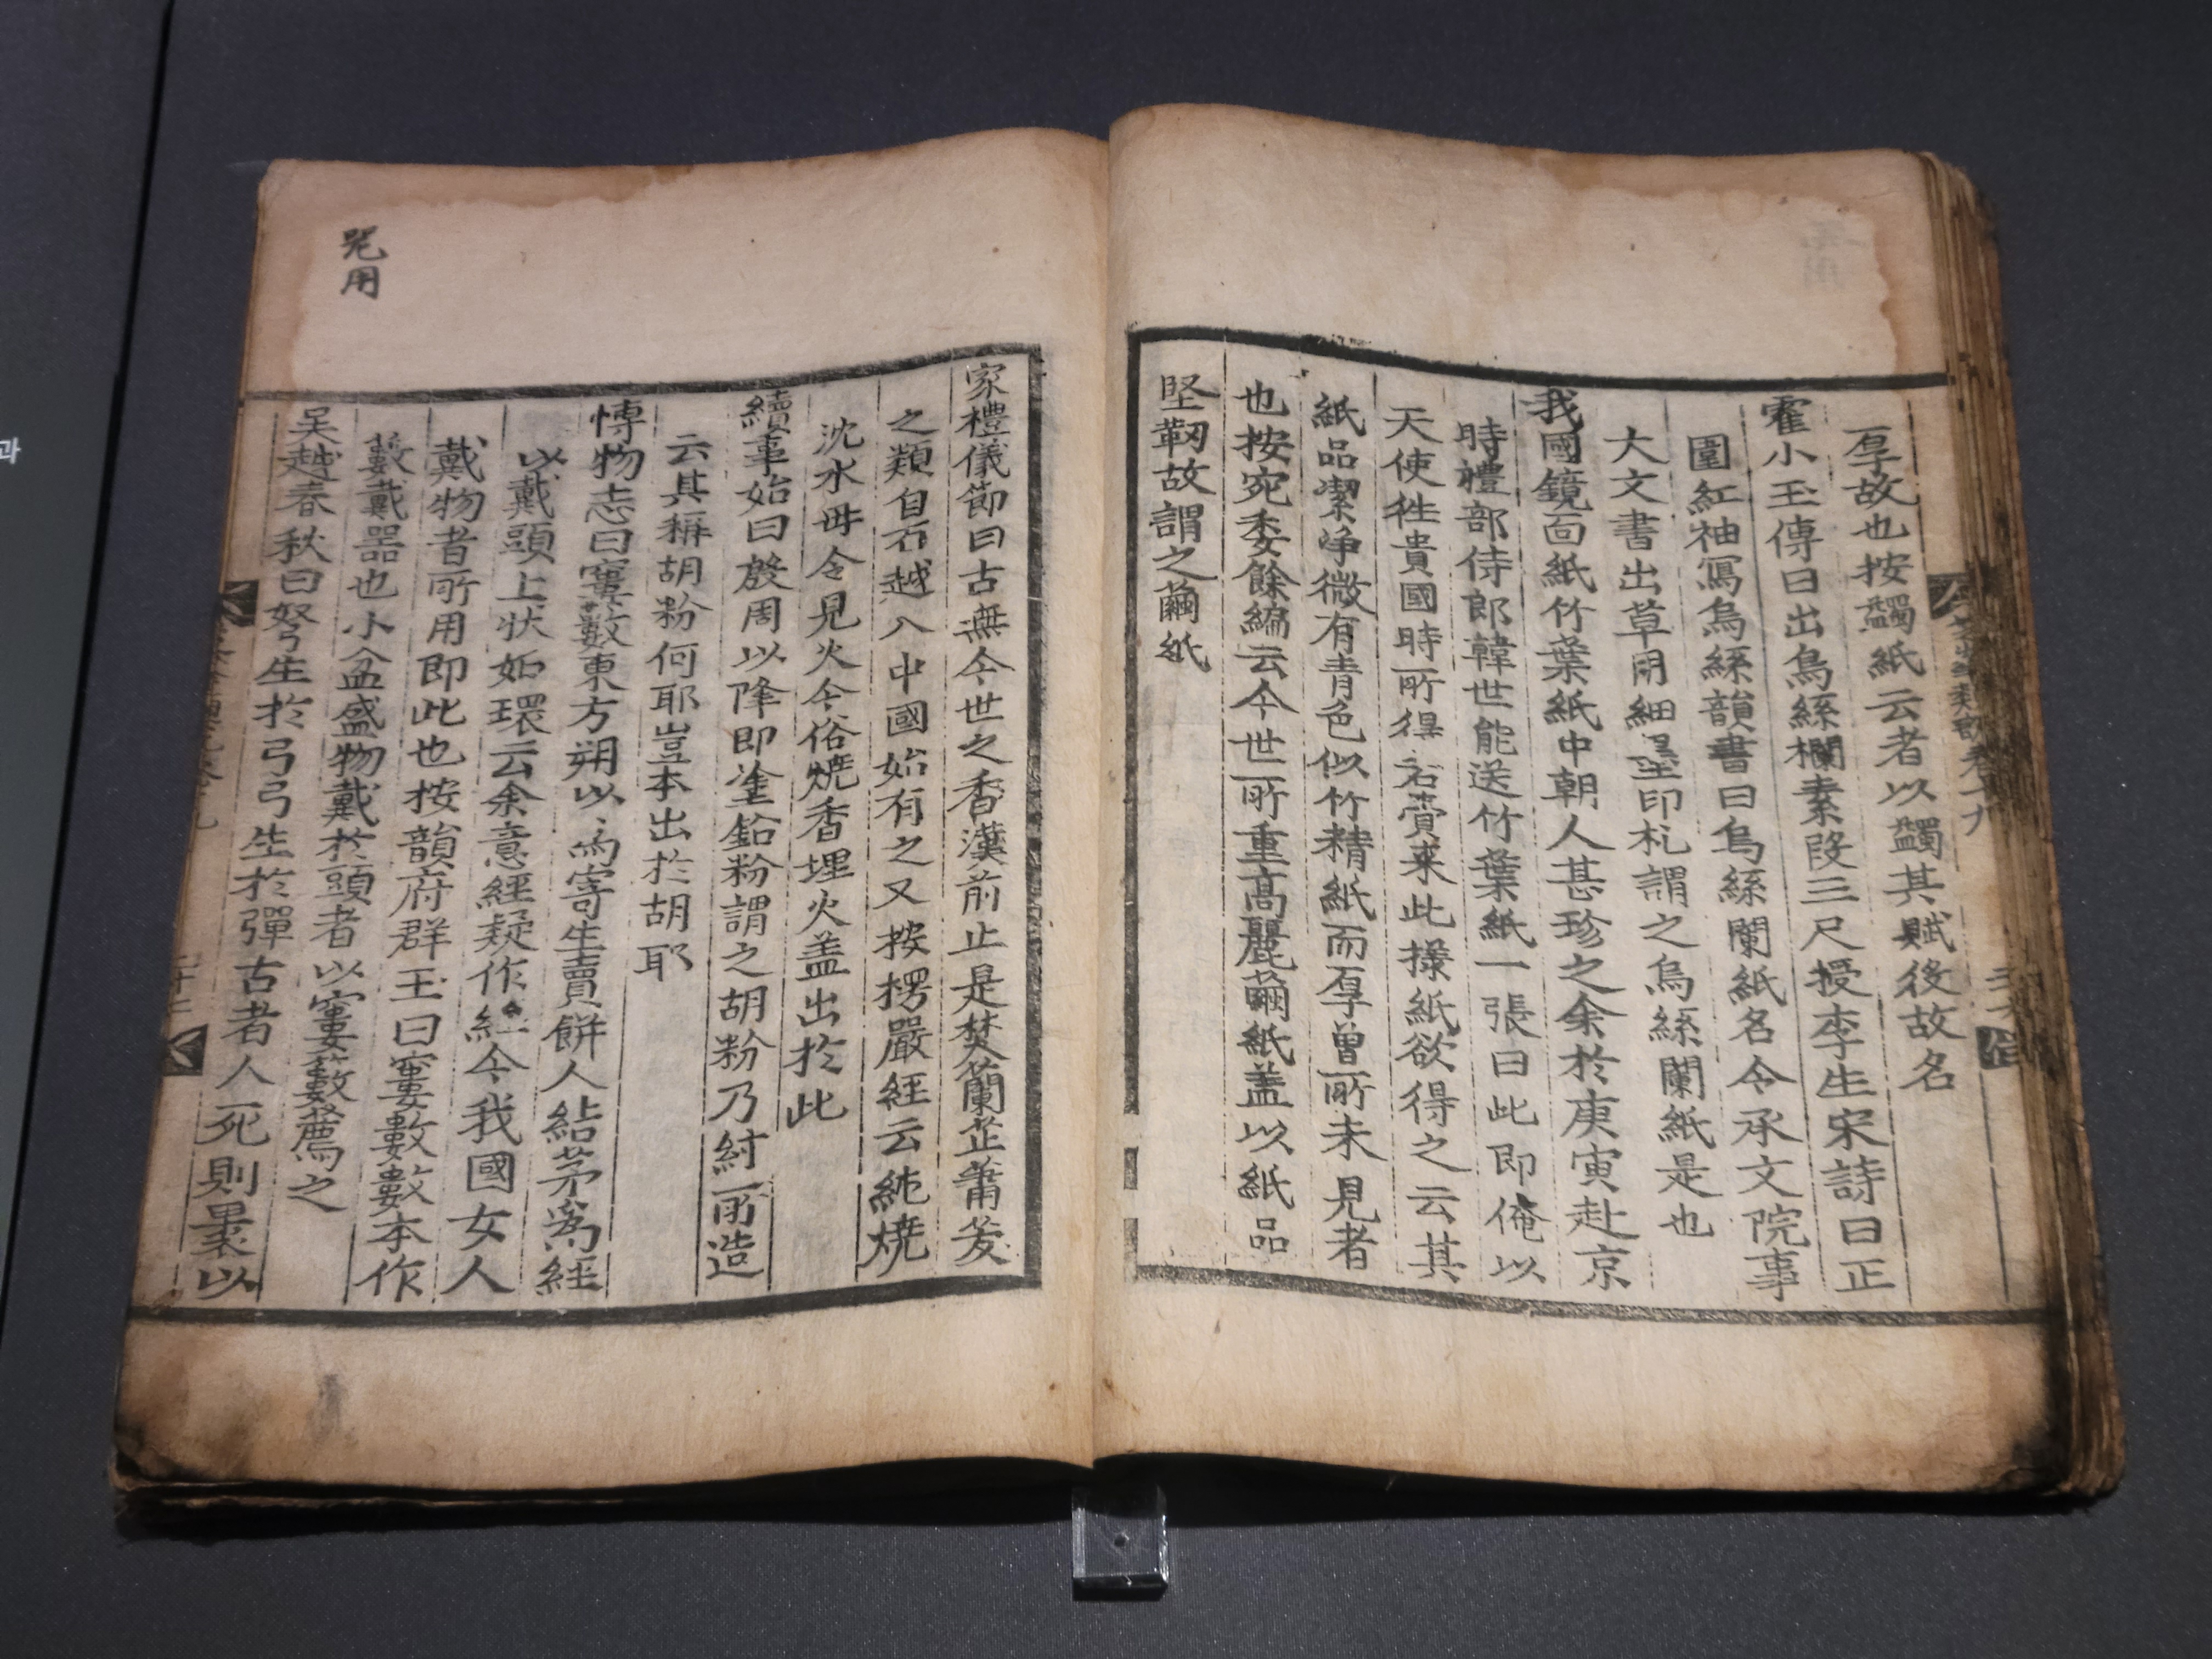 厚故也按蠲紙云者以蠲其賦後故名
霍小玉傳曰出烏絲欄素段三尺授李生宋詩曰正
圍紅袖寫烏絲韻書曰烏絲闌紙名今承文院事
大文書出草用細墨印札謂之烏絲闌紙是也
我國鏡面紙竹葉紙中朝人甚珍之余於庚寅赴京
時禮部侍郎韓世能送竹葉紙一張曰此即俺以
天使往貴國時所得若賫來此㨾紙欲得之云其
紙品潔淨微有青色似竹精紙而厚曾所未見者
也按宛委餘編云今世所重高麗繭紙盖以紙品
堅韌故謂之繭紙
器用
家禮儀節曰古無今世之香漢前止是焚蘭芷蕭芡
之類自百越入中國始有之又按楞嚴經云純燒
沈水毋令見火今俗燒香埋火盖出於此
續事始曰殷周以降即塗鉛粉謂之胡粉乃紂所造
云其稱胡粉何耶豈本出於胡耶
博物志曰窶藪東方朔以為寄生賣餅人結茅爲經
以戴頭上狀如環云余意經疑作絰今我國女人
戴物者所用即此也按韻府群玉曰窶數數本作
藪戴器也小盆盛物戴於頭者以窶藪薦之
吳越春秋曰弩生於弓弓生於彈古者人死則裹以